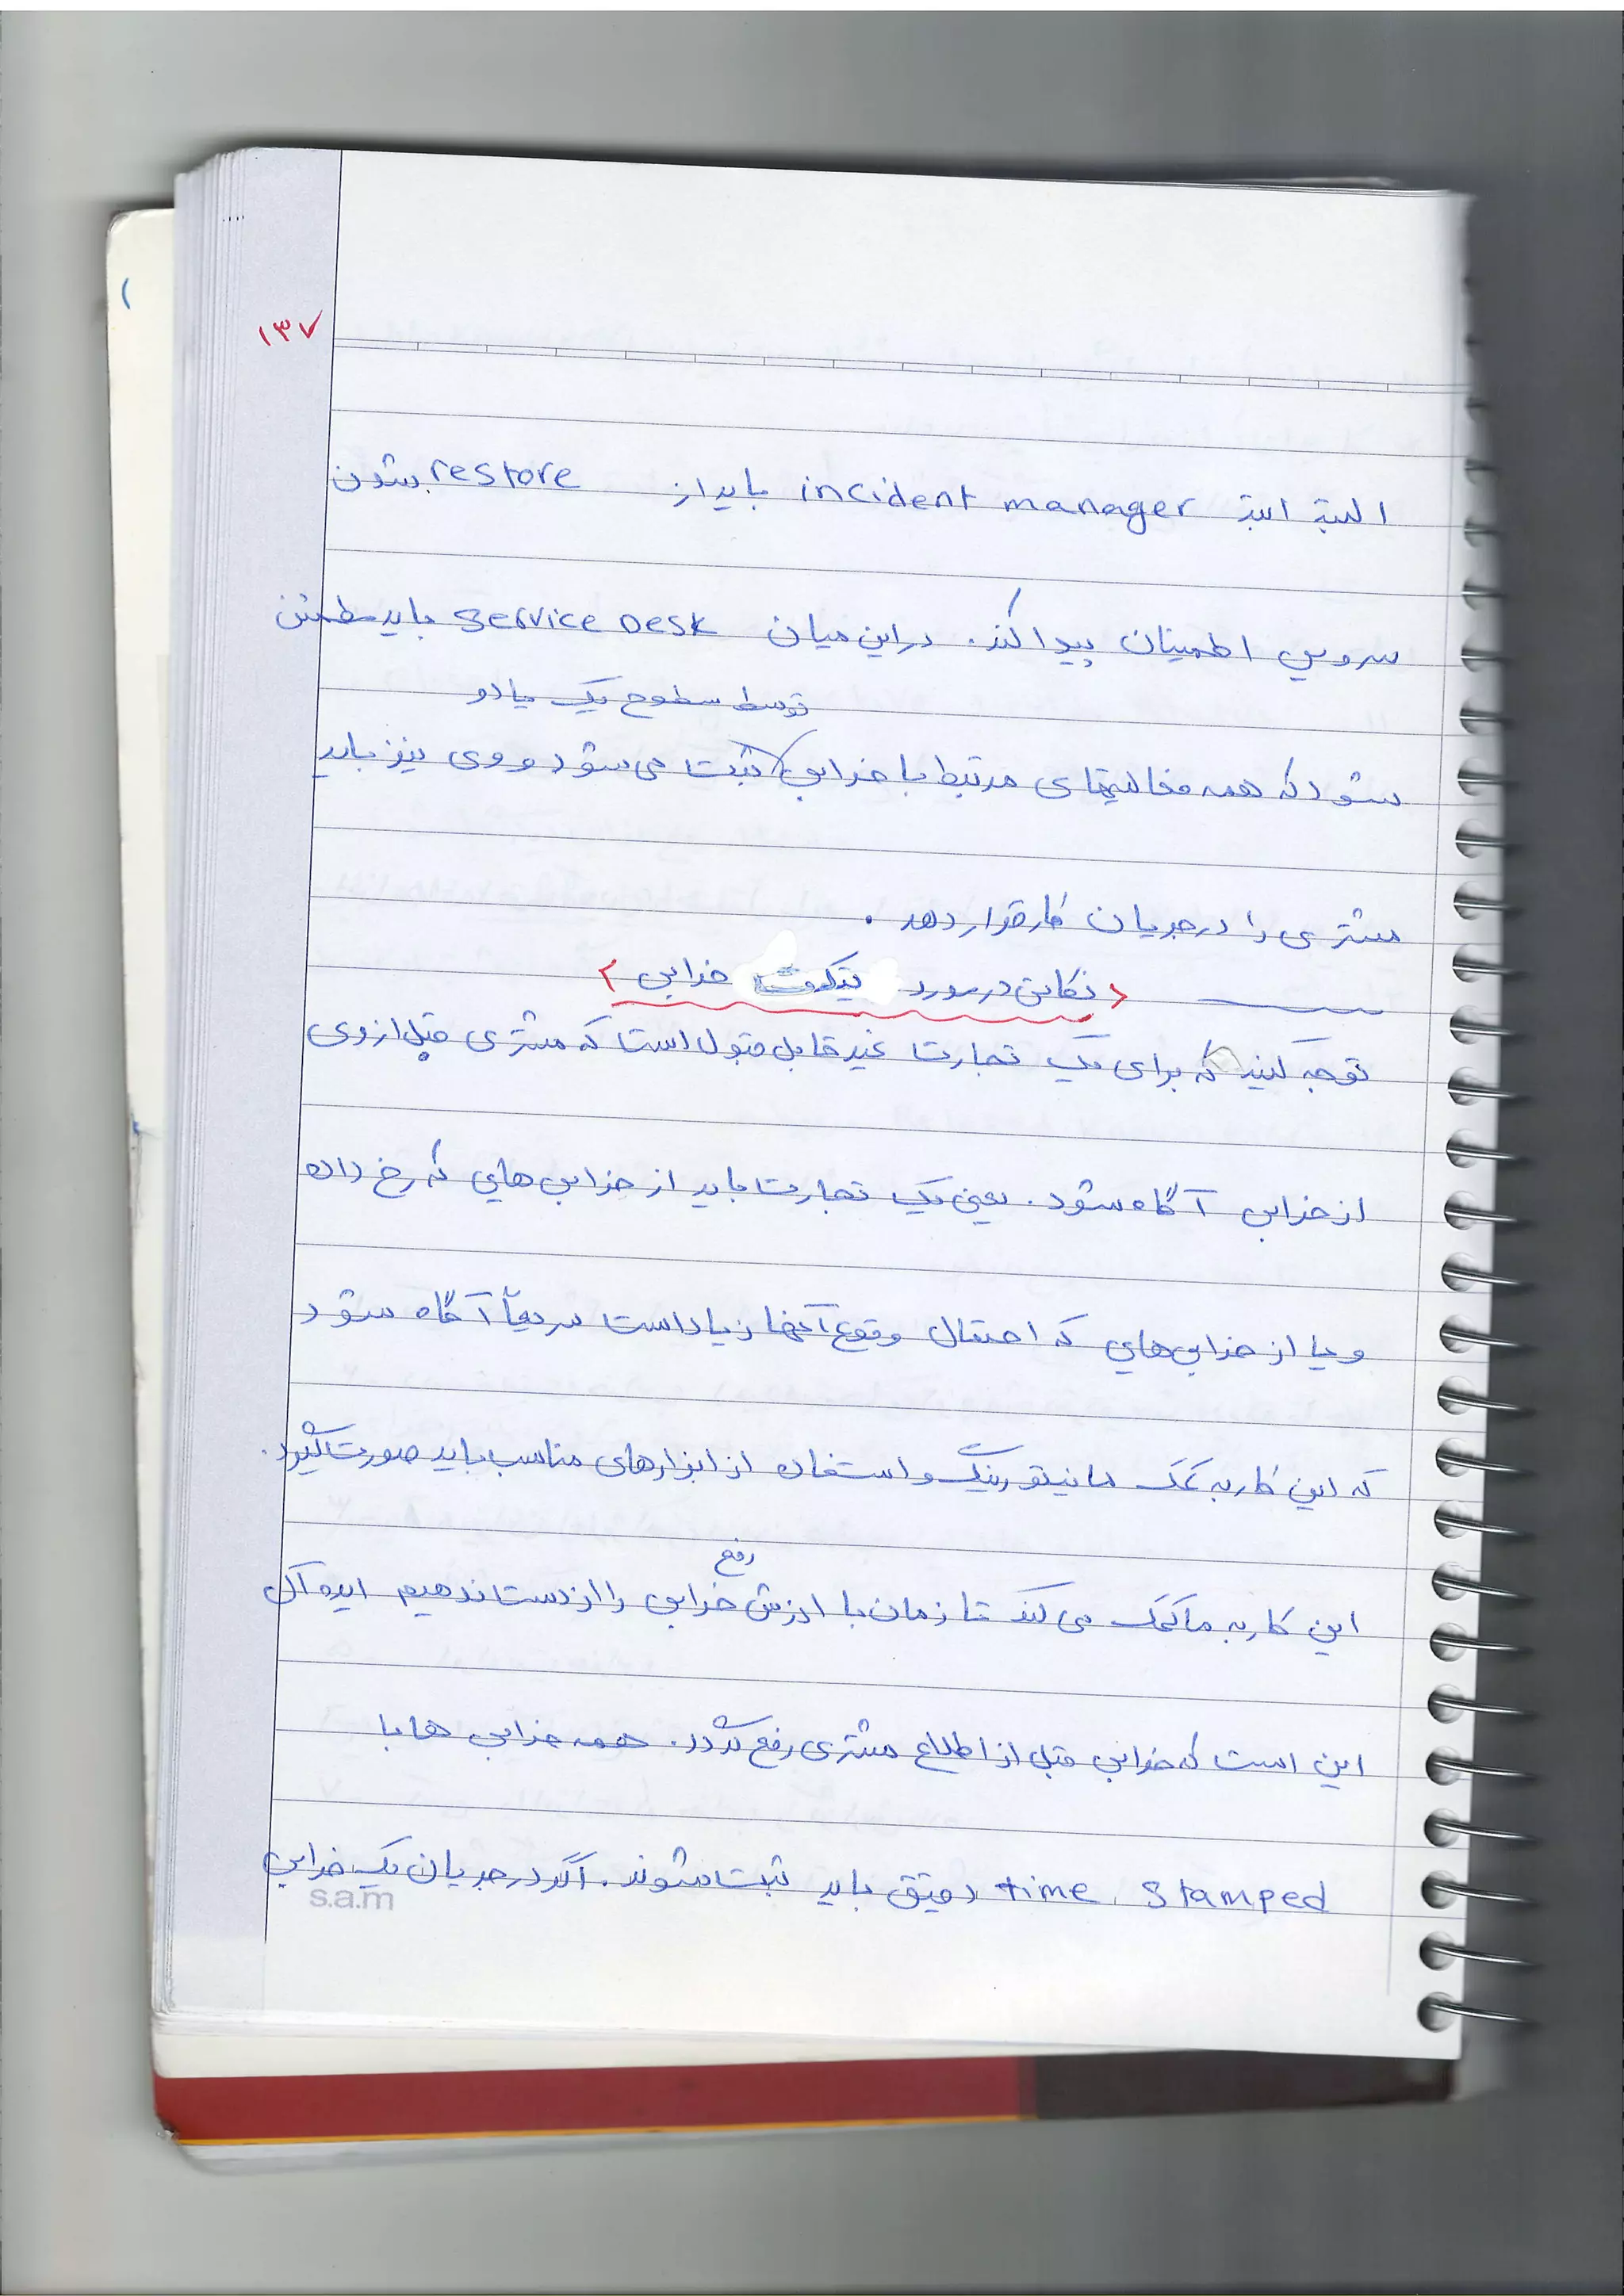 ۱۳۷
البته البته incident manager باید از restore شدن
سرویس اطمینان پیدا کند. در این میان service Desk باید مطمئن
توسط سطوح یک یا دو
شود که همه فعالیتهای مرتبط با خرابی ثبت می شود و وی نیز باید
مشتری را در جریان کار قرار دهد.
< نکاتی در مورد تیکت خرابی >
توجه کنید که برای یک تجارت غیر قابل قبول است که مشتری قبل از وی
از خرابی آگاه شود. یعنی یک تجارت باید از خرابی هایی که رخ داده
و یا از خرابی هایی که احتمال وقوع آنها زیاد است سریعاً آگاه شود
که این کار به کمک مانیتورینگ و استفاده از ابزارهای مناسب باید صورت گیرد.
رفع
این کار به ما کمک می کند تا زمان با ارزش خرابی را از دست ندهیم ایده آل
این است که خرابی قبل از اطلاع مشتری رفع گردد. همه خرابی ها با
time stamped دقیق باید ثبت شوند. اگر در جریان یک خرابی
s.a.m